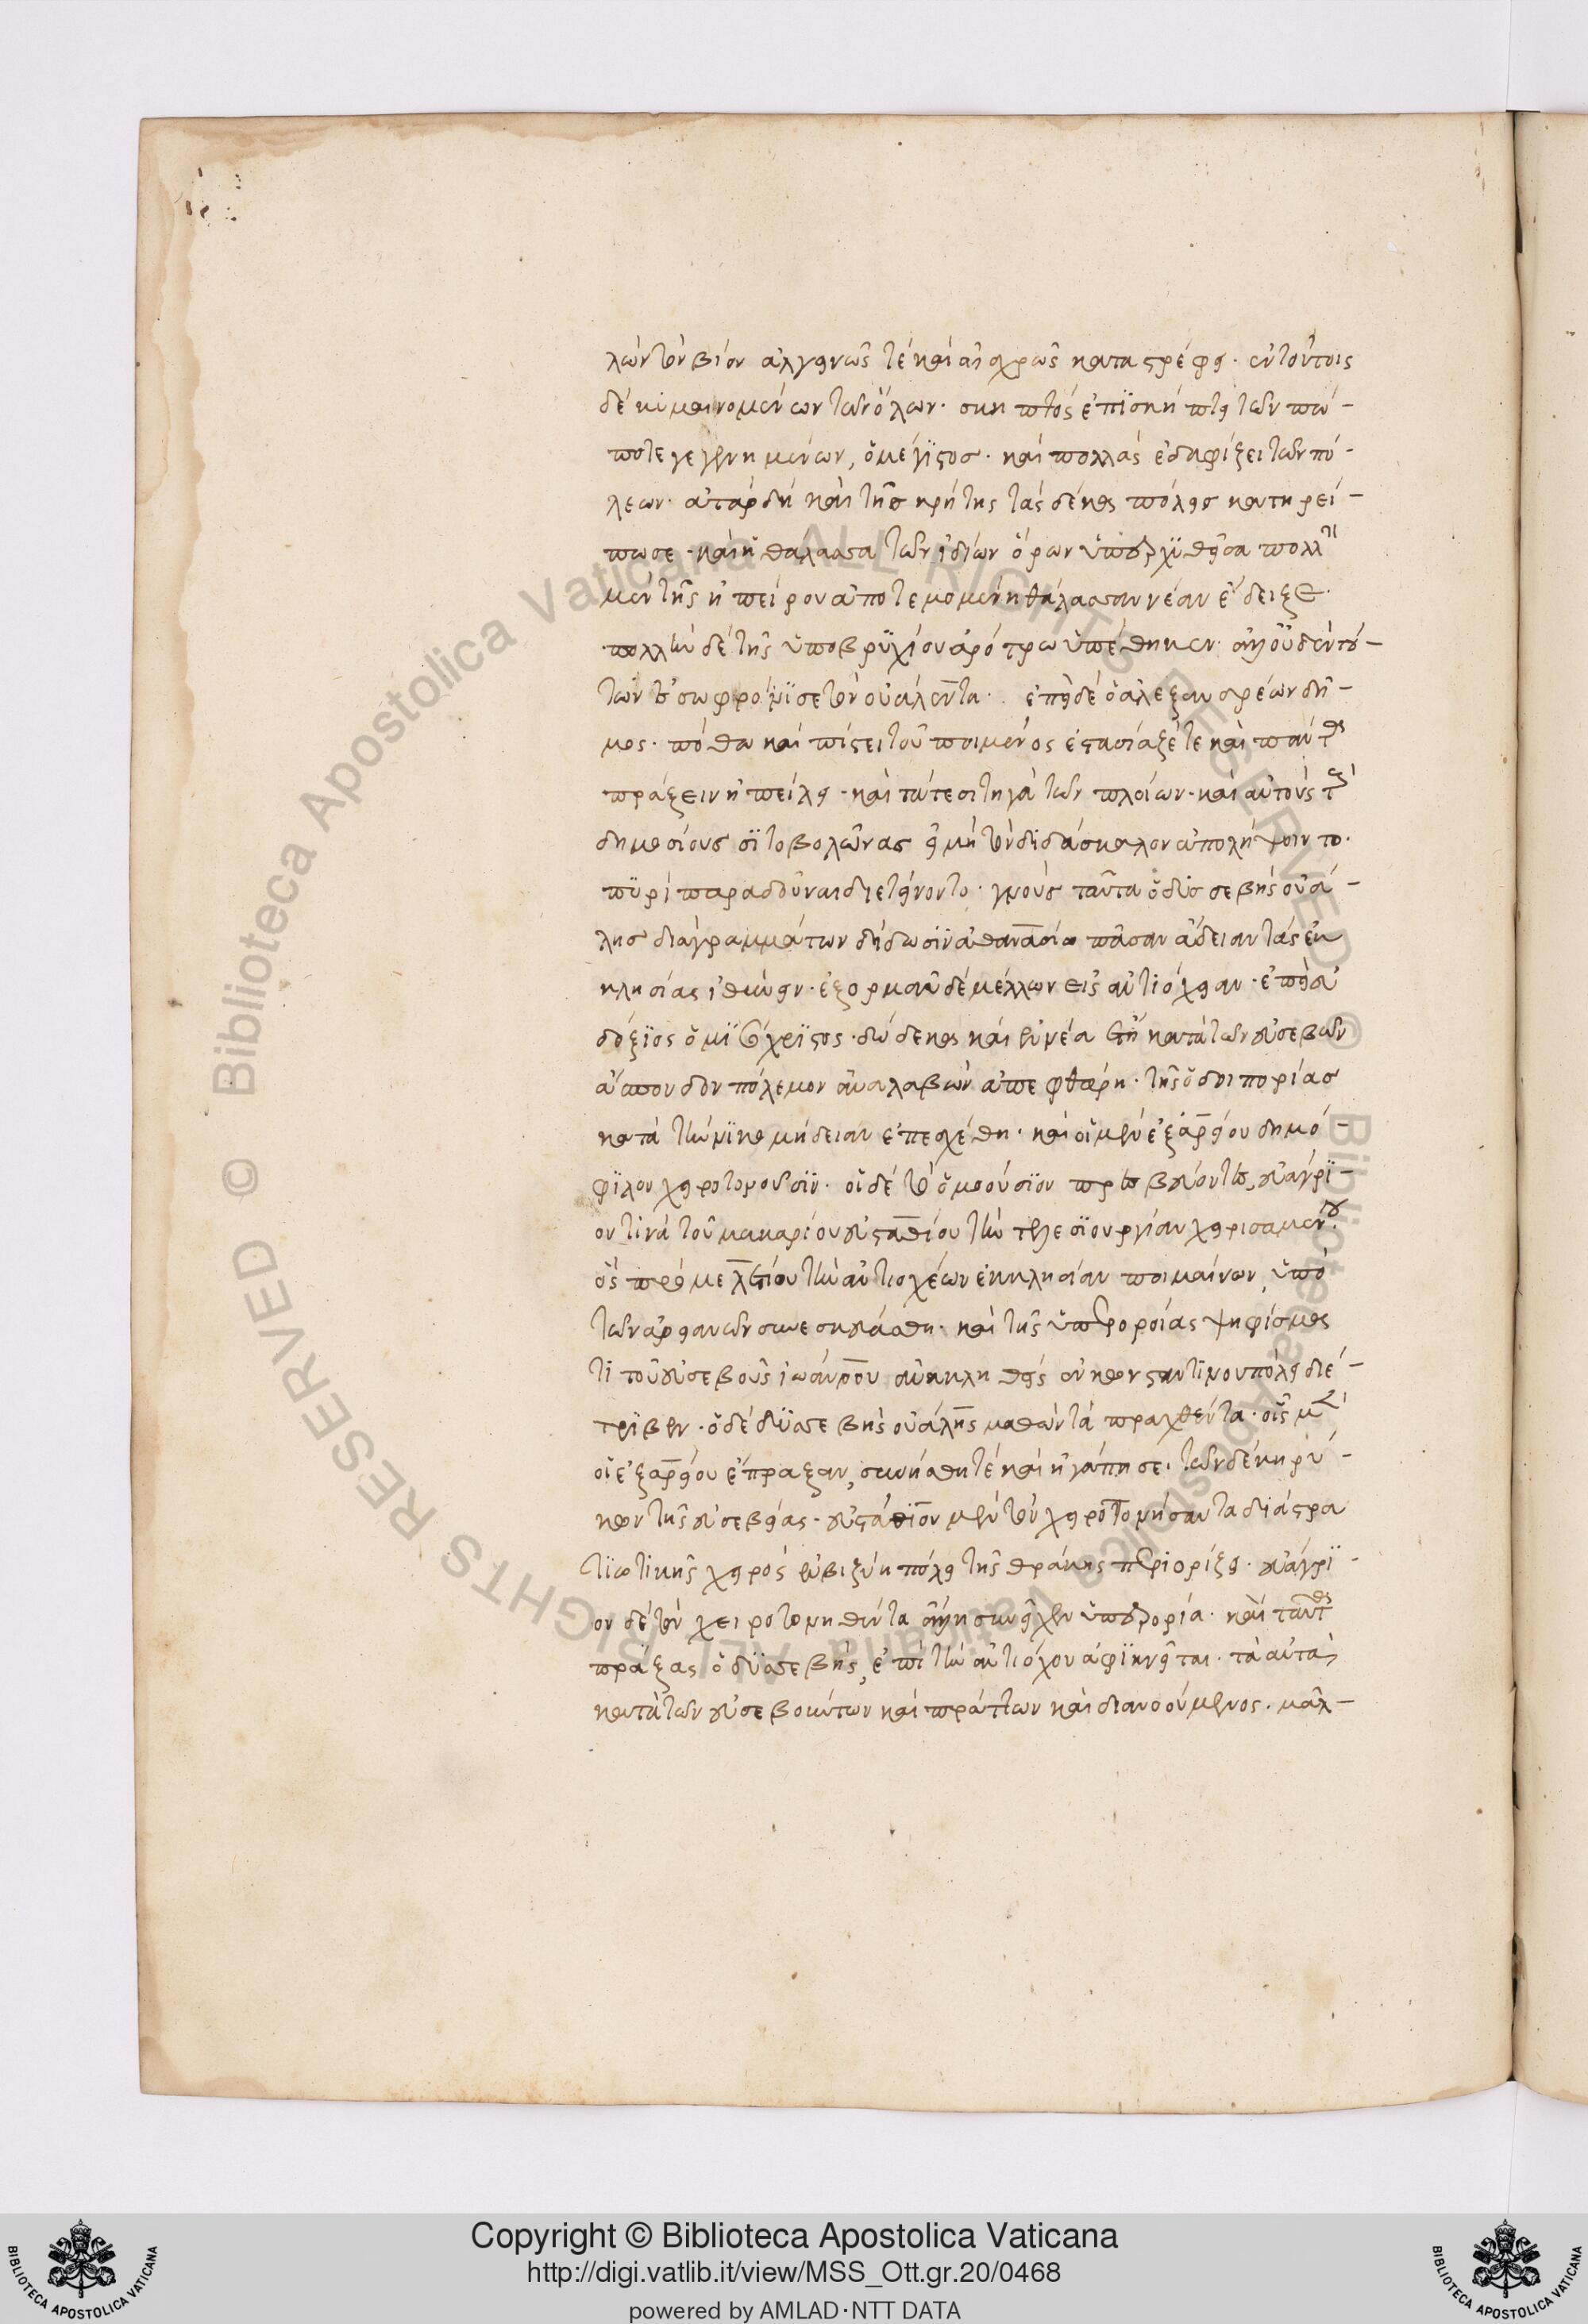 λὼν τὸν βίον ἀλγεινῶς τὲ καὶ αἰσχρῶς καταστρέφει· ἐν τούτοις
δὲ κυμαινομένων τῶν ὅλων· σκηπτὸς ἐπισκήπτει τῶν πώ-
ποτε γεγενημένων, ὁ μέγιστος· καὶ πολλὰς ἐδαφίζει τῶν πό-
λεων· ἀτὰρ δὴ καὶ τῆς κρήτης τὰς δέκα πόλεις κατηρεί-
πωσε· καὶ ἡ θάλασσα τῶν ἰδίων ὅρων ὑπερχυθεῖσα πολλὴ
μὲν τῆς ἠπείρου ἀποτεμομένη θάλασσαν νέαν ἔδειξε·
πολλὴν δὲ τῆς ὑποβρυχίου ἀρότρω ὑπέθηκεν· ἀλλ' οὐδὲν τού-
των ἐσωφρόνισε τὸν οὐάλεντα· ἐπεὶ δὲ ὁ ἀλεξανδρέων δῆ-
μος· πόθω καὶ πίστει τοῦ ποιμένος ἐστασίαζέ τε καὶ πάντα
πράξειν ἠπείλει· καὶ τά τε σιτηγὰ τῶν πλοίων· καὶ αὐτοὺς τοὺς
δημοσίους σιτοβολῶνας εἰ μὴ τὸν διδάσκαλον ἀπολήψοιντο·
πυρὶ παραδοῦναι διετείνοντο· γνοὺς ταῦτα ὁ δυσσεβὴς οὐά-
λης διὰ γραμμάτων δίδωσιν ἀθανασίω πᾶσαν ἄδειαν τὰς ἐκ
κλησίας ἰθύνειν· ἐξορμᾶν δὲ μέλλων εἰς ἀντιόχειαν· ἐπεὶ εὐ
δόξιος ὁ μισόχριστος· δώδεκα καὶ ἐννέα ἔτη κατὰ τῶν εὐσεβῶν
ἄσπονδον πόλεμον ἀναλαβὼν ἀπεφθάρη· τῆς ὁδοιπορίας
κατὰ τὴν νικομήδειαν ἐπεσχέθη· καὶ οἱ μὲν ἐξ ἀρείου δημό-
φιλον χειροτονοῦσιν· οἱ δὲ τὸ ὁμοούσιον πρεσβεύοντες, εὐάγρι-
ον τινὰ τοῦ μακαρίου εὐσταθίου τὴν τελεσιουργίαν χειρισαμένου·
ὃς πρὸ μελετίου τὴν ἀντιοχέων ἐκκλησίαν ποιμαίνων, ὑπὸ
τῶν ἀρειανῶν συνεσκευάσθη· καὶ τῆς ὑπερορίας ψηφίσμα
τι τοῦ εὐσεβοῦς ἰωάννου ἀνακληθεὶς ἐν κωνσταντινουπόλει διέ-
τριβεν· ὁ δὲ δυσσεβὴς οὐάλης μαθὼν τὰ πραχθέντα· οἷς μὲν
οἱ ἐξ ἀρείου ἔπραξαν, συνήσθη τὲ καὶ ἠγάπησε· τῶν δὲ κηρύ-
κων τῆς εὐσεβείας· εὐστάθιον μὲν τὸν χειροτονήσαντα διὰ στρα
τιωτικῆς χειρὸς ἐν βιζύη πόλει τῆς θράκης περιορίζει· εὐάγρι-
ον δὲ τὸν χειροτονηθέντα ἄλλη συνεῖχεν ὑπερορία· καὶ ταῦτα
πράξας ὁ δυσσεβὴς, ἐπὶ τὴν ἀντιόχου ἀφικνεῖται· τὰ αὐτὰ
κατὰ τῶν εὐσεβούντων καὶ πράττων καὶ διανοούμενος· μᾶλ-
Copyright © Biblioteca Apostolica Vaticana
http://digi.vatlib.it/view/MSS_Ott.gr.20/0468
powered by AMLAD·NTT DATA